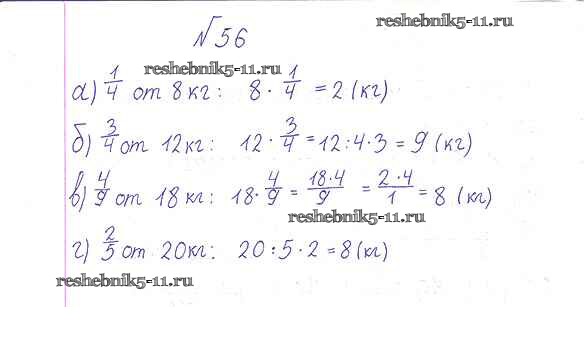 reshebnik5-11.ru
№56
reshebnik5-11.ru
а) 1/4 от 8 кг: 8 · 1/4 = 2 (кг)
б) 3/4 от 12кг: 12 · 3/4 = 12:4·3 = 9 (кг)
в) 4/9 от 18 кг: 18 · 4/9 = 18·4/9 = 2·4/1 = 8 (кг)
reshebnik5-11.ru
г) 2/5 от 20кг: 20:5·2=8(кг)
reshebnik5-11.ru